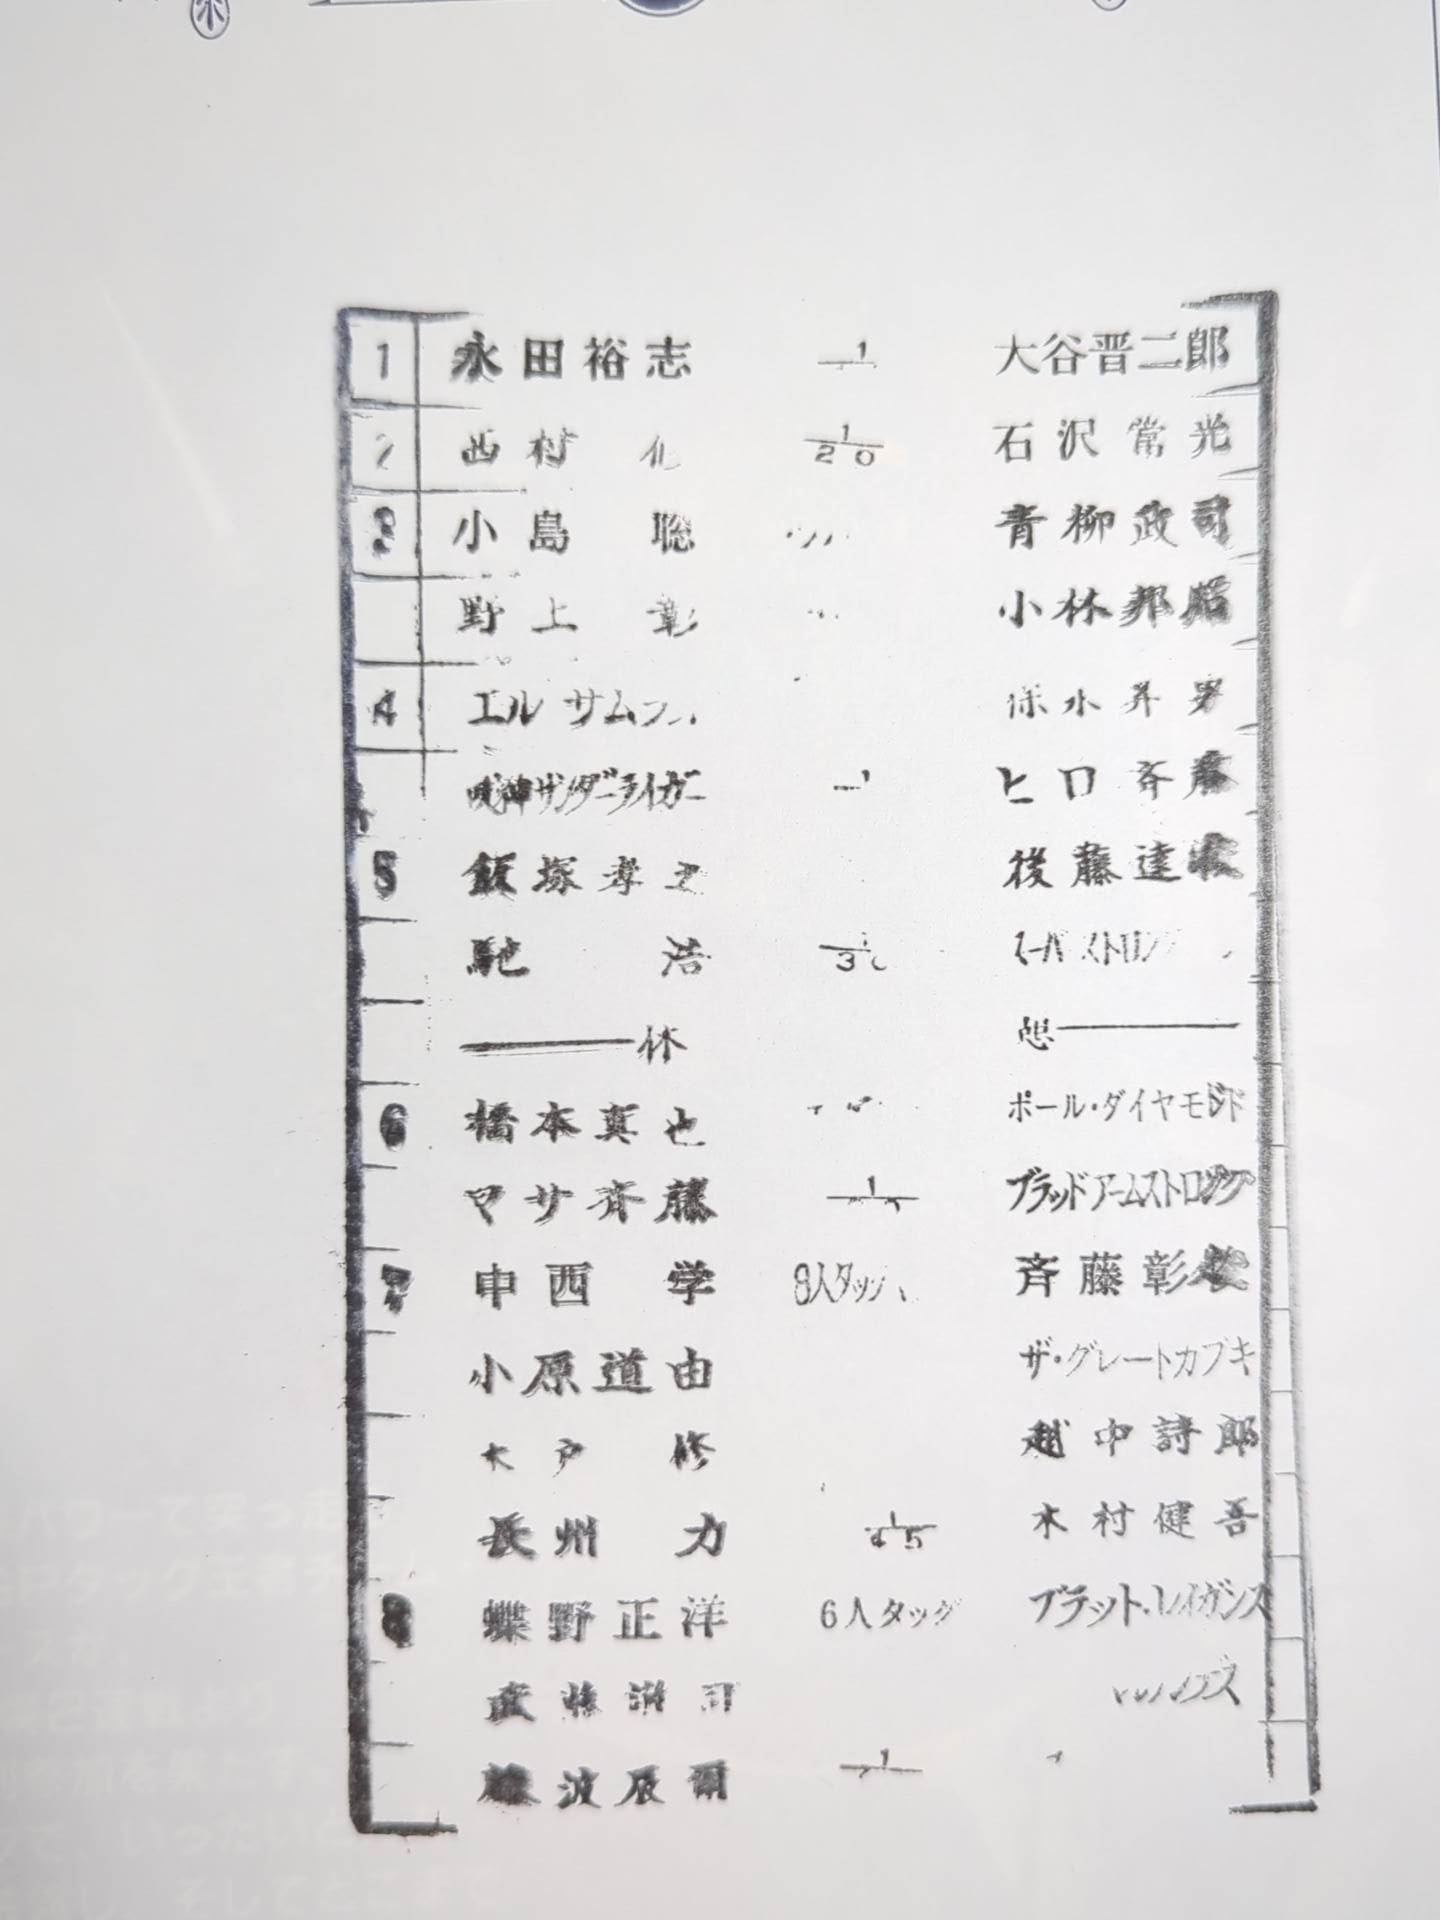 1 永田裕志 1 大谷晋二郎
西村 1/20 石沢常光
3 小島聡 青柳政司
野上彰 小林邦昭
4 エル サム 保永昇男
獣神サンダーライガー 1 ヒロ斉藤
5 飯塚孝之 後藤達俊
馳浩 3
休 憩
6 橋本真也 ポール・ダイヤモンド
マサ斉藤 1 ブラッドアームストロング
7 中西学 8人タッグ 斉藤彰俊
小原道由 ザ・グレートカブキ
木戸修 越中詩郎
長州力 1/45 木村健吾
8 蝶野正洋 6人タッグ ブラット・レイガンス
藤波辰爾 1